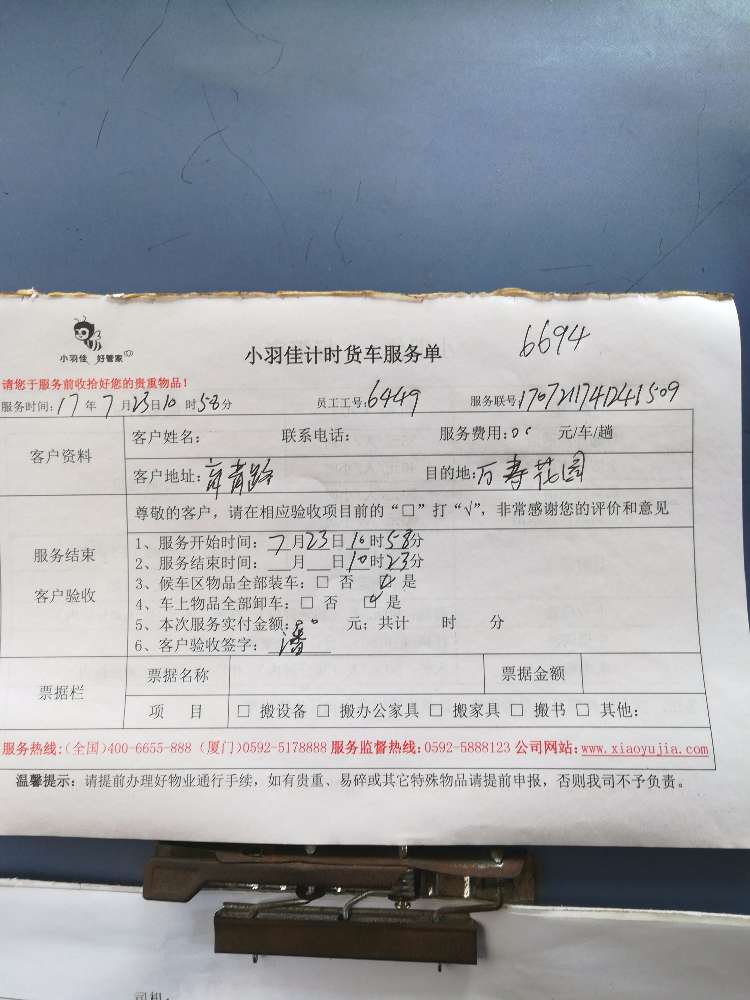 6694
小羽佳 好管家
小羽佳计时货车服务单
请您于服务前收拾好您的贵重物品！
服务时间：17年7月23日10时58分 员工工号：6449 服务联号
客户资料
客户姓名： 联系电话： 服务费用： 元/车/趟
客户地址： 目的地：万寿花园
服务结束
客户验收
尊敬的客户，请在相应验收项目前的“□”打“√”，非常感谢您的评价和意见
1、服务开始时间：7月23日10时58分
2、服务结束时间： 月 日10时23分
3、候车区物品全部装车：□ 否 ☑ 是
4、车上物品全部卸车：□ 否 ☑ 是
5、本次服务实付金额： 元；共计 时 分
6、客户验收签字：潘
票据栏
票据名称 票据金额
项 目 □ 搬设备 □ 搬办公家具 □ 搬家具 □ 搬书 □ 其他：
服务热线：(全国)400-6655-888 (厦门)0592-5178888 服务监督热线：0592-5888123 公司网站：www.xiaoyujia.com
温馨提示：请提前办理好物业通行手续，如有贵重、易碎或其它特殊物品请提前申报，否则我司不予负责。
司机：